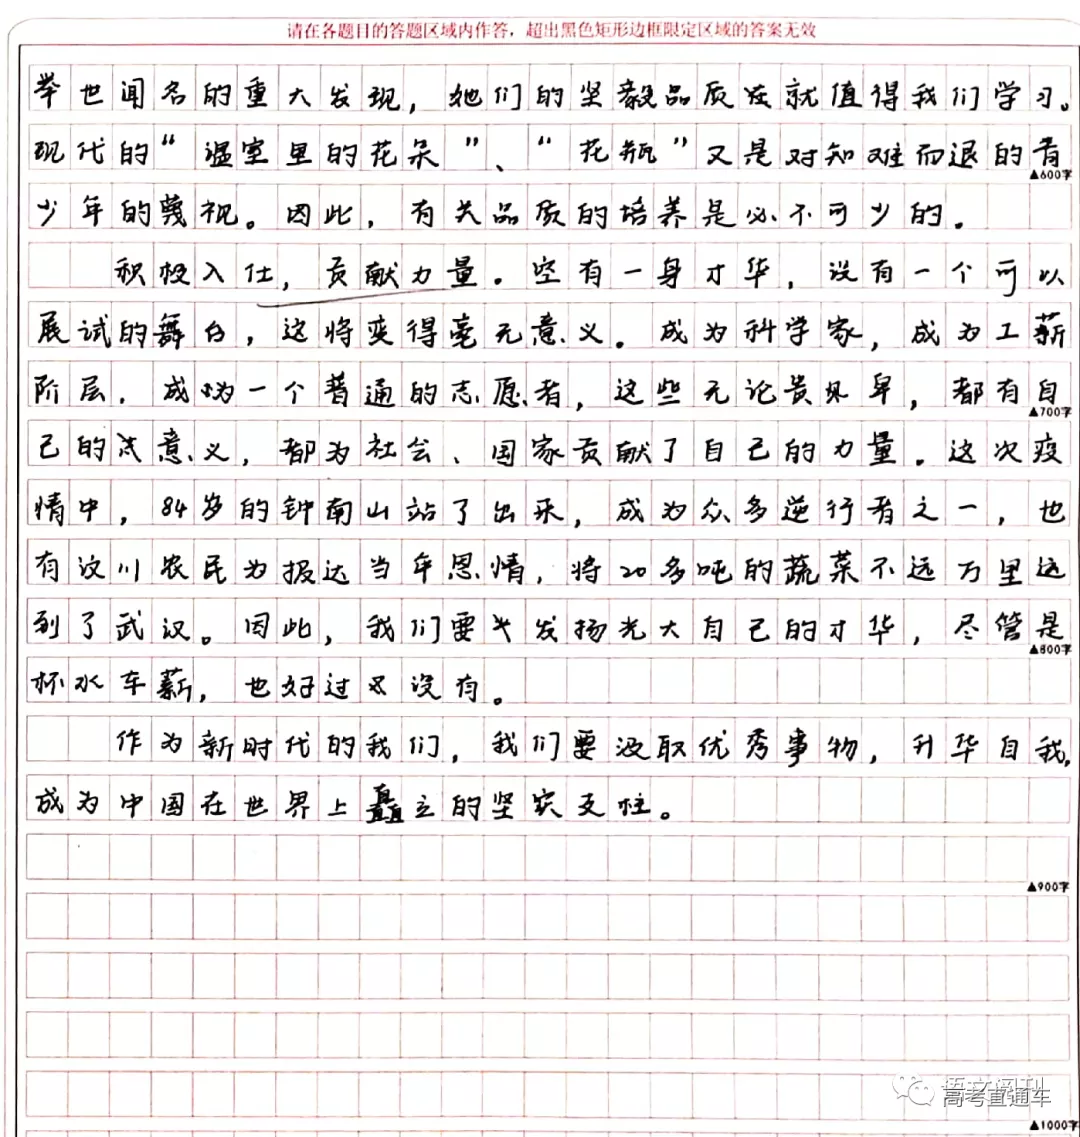 请在各题目的答题区域内作答，超出黑色矩形边框限定区域的答案无效
举世闻名的重大发现，她们的坚毅品质就值得我们学习。
现代的“温室里的花朵”、“花瓶”又是对知难而退的青
▲600字
少年的蔑视。因此，有关品质的培养是必不可少的。
积极入仕，贡献力量。空有一身才华，没有一个可以
展试的舞台，这将变得毫无意义。成为科学家，成为工薪
阶层，成为一个普通的志愿者，这些无论贵卑，都有自
▲700字
己的意义，都为社会、国家贡献了自己的力量。这次疫
情中，84岁的钟南山站了出来，成为众多逆行者之一，也
有汶川农民为报达当年恩情，将20多吨的蔬菜不远万里送
到了武汉。因此，我们要发扬光大自己的才华，尽管是
▲800字
杯水车薪，也好过没有。
作为新时代的我们，我们要汲取优秀事物，升华自我，
成为中国在世界上矗立的坚实支柱。
▲900字
语文阅刊
高考直通车
▲1000字